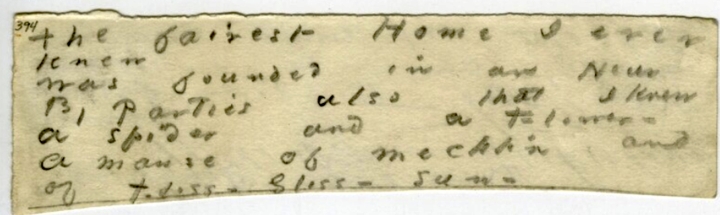 394
The fairest Home I ever
knew
was founded in an Hour
By Parties also that I knew
a spider and a Flower -
a manse of mechlin and
of Floss - Gloss - Sun -